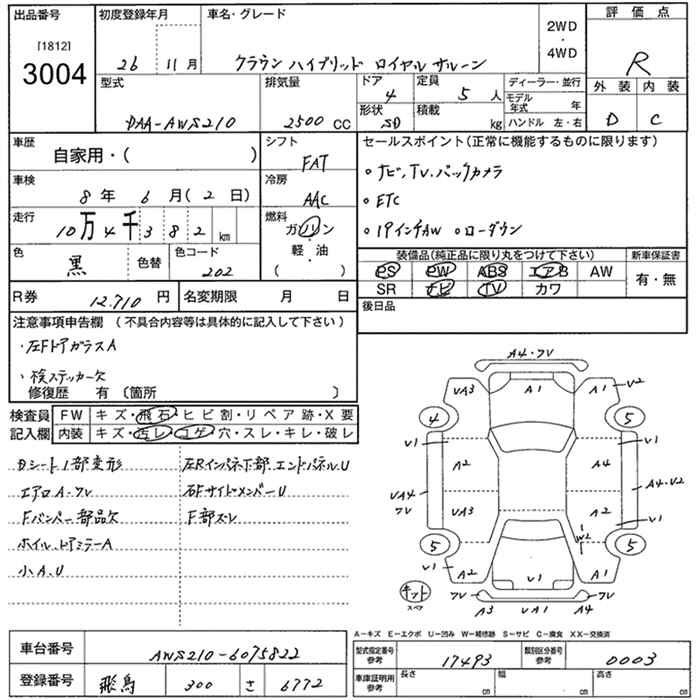 出品番号
[1812]
3004
初度登録年月
26 11 月
車名・グレード
クラウン ハイブリッド ロイヤル サルーン
2WD
・
4WD
評価点
R
外装 内装
D C
型式
DAA-AWS210
排気量
2500 CC
ドア
4
形状
SD
定員
5 人
積載
kg
ディーラー・並行
モデル年式 年
ハンドル 左・右
車歴
自家用・( )
シフト
FAT
車検
8 年 6 月(2 日)
冷房
AAC
走行
10万4千382 km
燃料
ガ ハ ン
軽・油
( )
色
黒
色替
色コード
202
セールスポイント(正常に機能するものに限ります)
○ ナビ, TV, バックカメラ
○ ETC
○ 19インチAW ○ ローダウン
装備品(純正品に限り丸をつけて下さい)
PS PW ABS エアB AW
SR ナビ TV カワ
新車保証書
有・無
R券
12,710 円
名変期限 月 日
後日品
注意事項申告欄 (不具合内容等は具体的に記入して下さい)
・左Fドアガラス A
・検ステッカー欠
修復歴 有〔箇所 〕
検査員
記入欄
FW キズ・飛石・ヒビ割・リペア跡・X要
内装 キズ・汚レ・コゲ・穴・スレ・キレ・破レ
Dシート1部変形
エアロA・ワレ
Fバンパー部品欠
ホイル、ドアミラーA
小A、U
左Rインパネ下部、エンドパネルU
右FサイドメンバーU
F部ズレ
A4・ワレ
UA3 A1 A1 U2
4 5
U1 U1
A2 A4
UA4 ワレ
A4・U2
UA3 A2
U1
W2
5 5
U1
A2 U1 A1
キット
スペア
ワレ ワレ
A3 UA1 A4
A-キズ E-エクボ U-凹み W-補修跡 S-サビ C-腐食 XX-交換済
車台番号
AWS210-6075822
登録番号
飛鳥 300 さ 6772
型式指定番号
参考
17493
類別区分番号
参考
0003
車庫証明用
参考
長さ cm
幅 cm
高さ cm